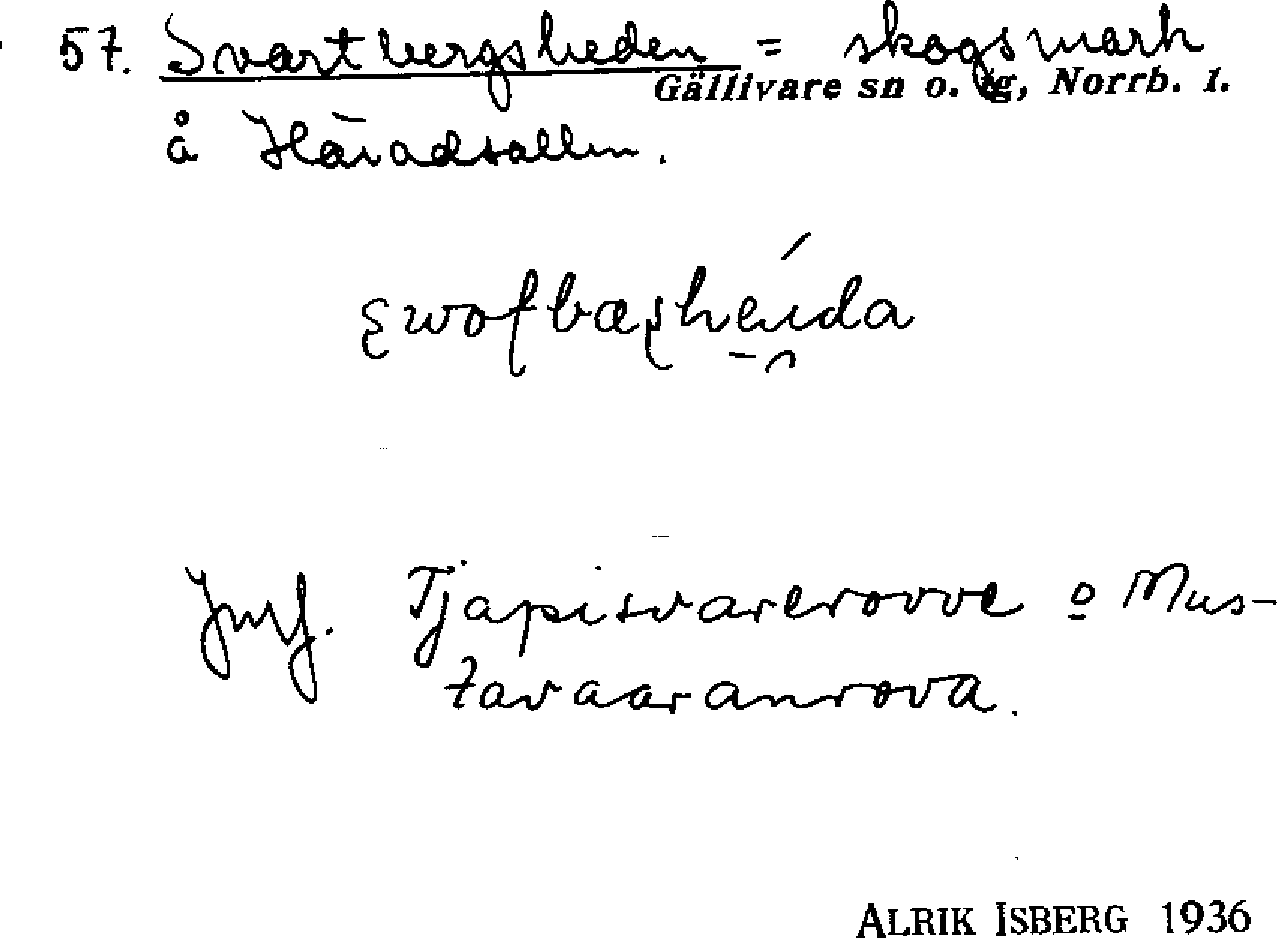 57. Svartbergsheden = skogsmark
Gällivare sn o. tg, Norrb. l.
å Häradsallm.
Jmf. Tjapisvarerovve o Mus-
tavaaranrova.
ALRIK ISBERG 1936